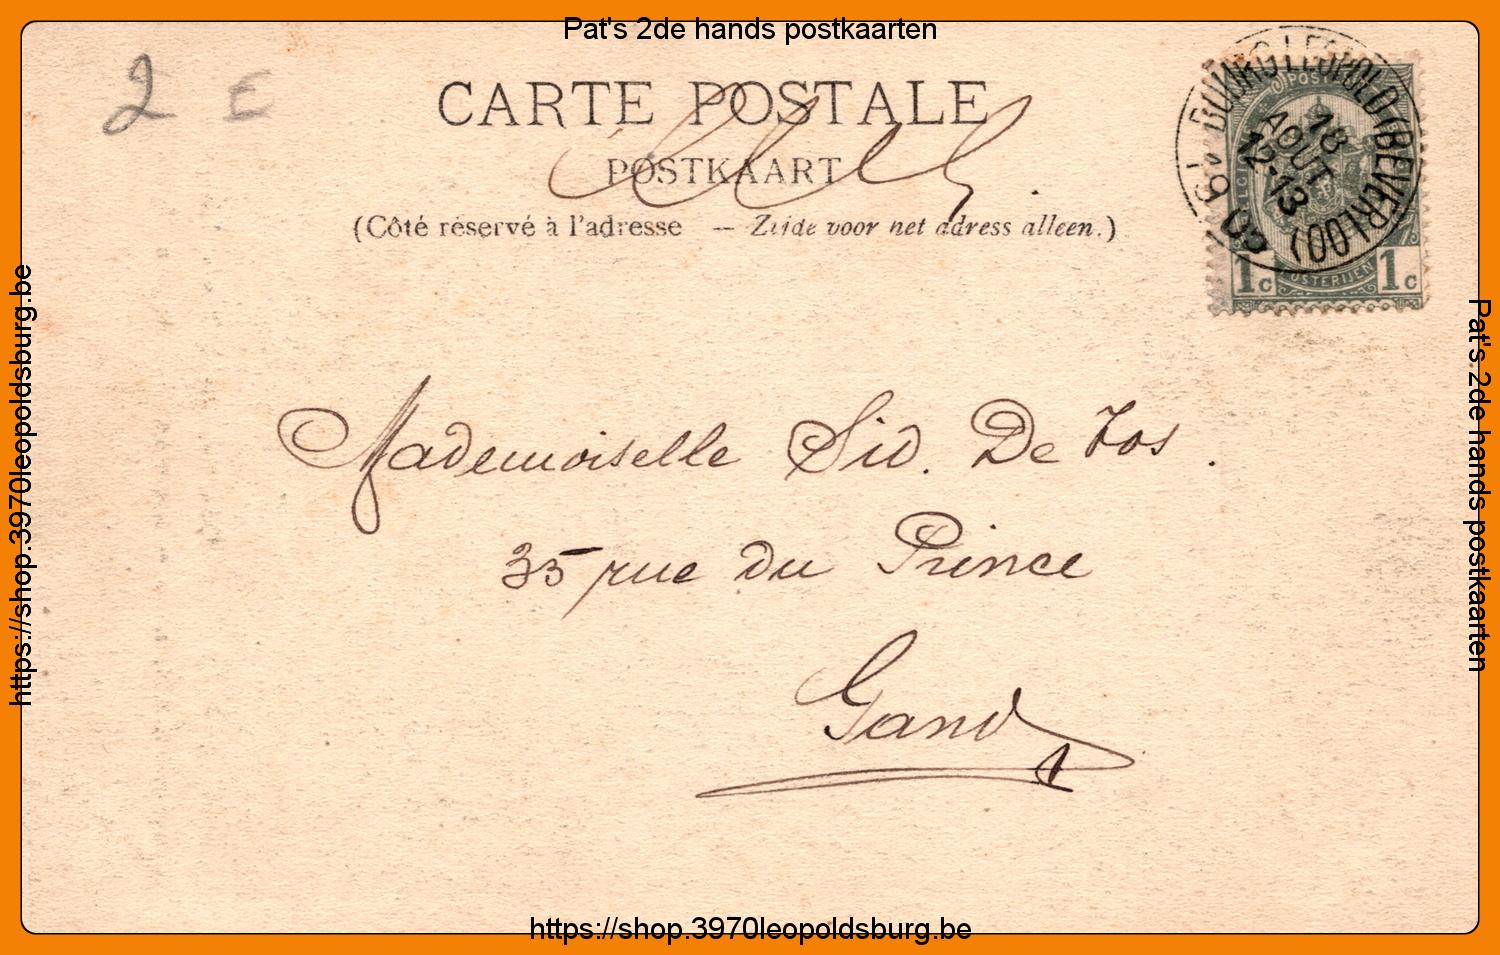 Pat's 2de hands postkaarten
2 €
CARTE POSTALE
POSTKAART
(Côté réservé à l'adresse -- Zijde voor het adress alleen.)
BOURG-LÉOPOLD (BEVERLOO)
18
AOUT
12-13
POSTES
OSTERIJEN
1c 1c
Mademoiselle Sid. De Vos.
35 rue du Prince
Gand
1
https://shop.3970leopoldsburg.be
Pat's 2de hands postkaarten
https://shop.3970leopoldsburg.be